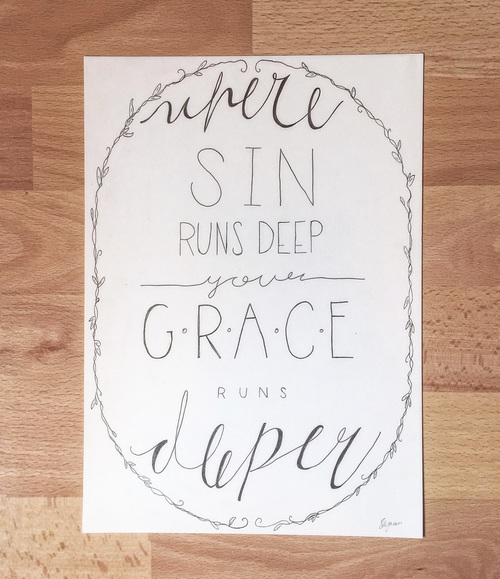 where
SIN
RUNS DEEP
your
G·R·A·C·E
RUNS
deeper